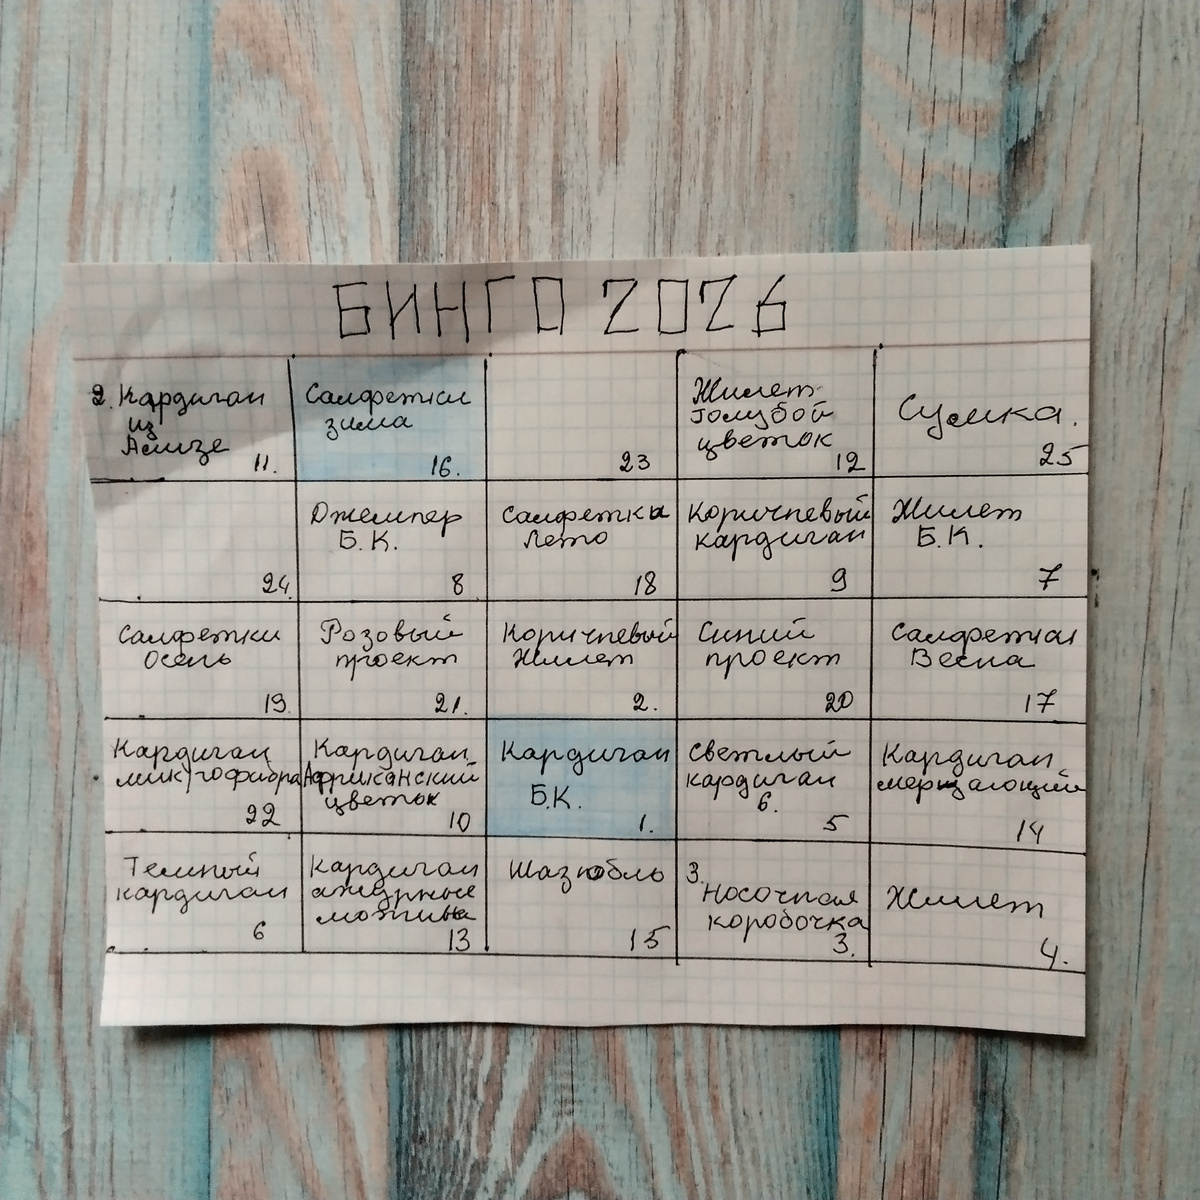 БИНГО 2026
2. Кардиган
из
Ализе
11.
Салфетки
зима
16.
23
Жилет
голубой
цветок
12
Сумка.
25
24
Джемпер
Б.К.
8
Салфетки
Лето
18
Коричневый
кардиган
9
Жилет
Б.К.
7
Салфетки
Осень
19.
Розовый
проект
21.
Коричневый
Жилет
2.
Синий
проект
20
Салфетки
Весна
17
Кардиган
микрофибра
22
Кардиган
Африканский
цветок
10
Кардиган
Б.К.
1.
Светлый
кардиган
6.
5
Кардиган
мерцающий
14
Темный
кардиган
6
Кардиган
ажурные
мотивы
13
Шазюбль
15
3.
Носочная
коробочка
3.
Жилет
4.